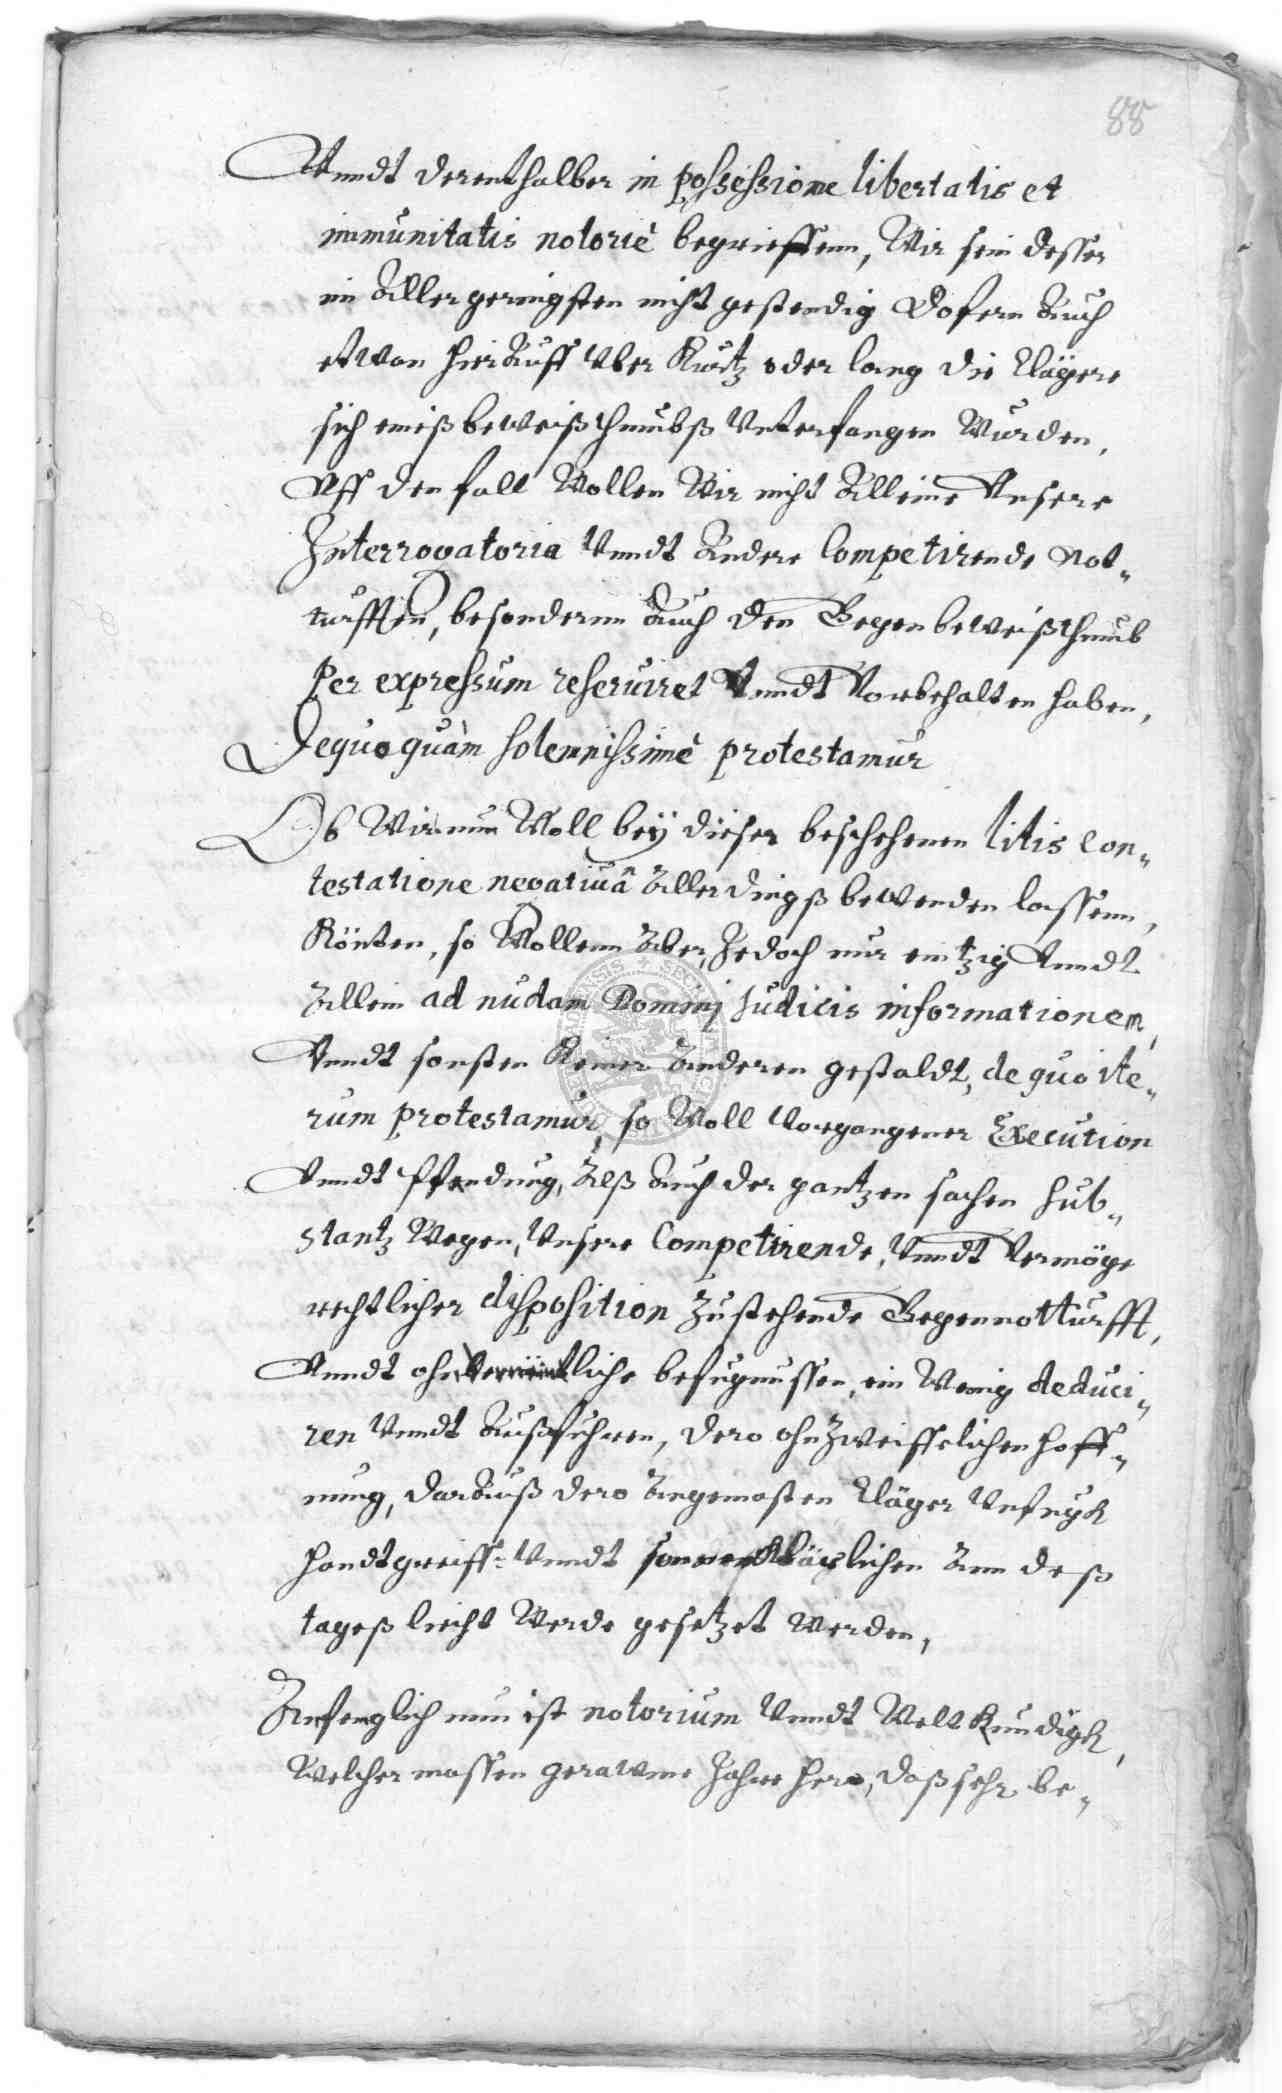 88
Vnndt derenthalber in possessione libertatis et
immunitatis notoriè begrieffenn, Wir sein desser
im Allergeringsten nicht gestendig Dofern Auch
etwan hierAuff Vber Kurtz oder lang die Clägere
sich einiß beweißthumbß Vnterfangen Wurden,
Vff den fall Wollen Wir nicht Alleine Vnsere
Interrogatoria Vnndt Andere Competirende Not¬
turfften, besondernn Auch den Gegenbeweißthumb
Per expressum reseruiret Vnndt Vorbehalten haben,
Dequo quàm solennissimè protestamur
Ob Wir nun Woll bey dieser beschehenen litis con¬
testatione negatiuâ Allerdingß bewenden lassenn,
Könten, so Wollenn Aber, Jedoch nur eintzig Vnndt
Allein ad nudam Dominj Judicis informationem,
Vnndt sonsten Keiner Anderen gestaldt, de quo ite¬
rum protestamur, so Woll Vorgangener Execution
Vnndt Pfandung, Alß Auch der gantzen sachen sub¬
stantz Wegen, Vnsere Competirende, Vnndt Vermöge
rechtlicher disposition Zustehende Gegennotturfft,
Vnndt ohn liche befugnussen, ein Wenig deduci¬
ren Vnndt Außfuhren, dero ohnZweiffelichen hoff¬
nung, darAuß dero Angemasten Cläger Vnfugk
handtgreiff= Vnndt sonnenKlärlichen Ann deß
tageß liecht Werde gesetzet Werden,
Anfenglich nun ist notorium Vnndt WeltKundigk,
Welcher massen gerawme Jahre hero, daß sehr be¬